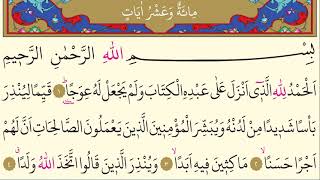 مِائَةٌ وَعَشْرُ اٰيَاتٍ
بِسْــمِ اللّٰهِ الرَّحْمٰنِ الرَّحٖيمِ
اَلْحَمْدُ لِلّٰهِ الَّذٖٓى اَنْزَلَ عَلٰى عَبْدِهِ الْكِتَابَ وَلَمْ يَجْعَلْ لَهُ عِوَجًا ﴿١﴾ قَيِّمًا لِيُنْذِرَ
بَأْسًا شَدٖيدًا مِنْ لَدُنْهُ وَيُبَشِّرَ الْمُؤْمِنٖينَ الَّذٖينَ يَعْمَلُونَ الصَّالِحَاتِ اَنَّ لَهُمْ
اَجْرًا حَسَنًا ﴿٢﴾ مَاكِثٖينَ فٖيهِ اَبَدًا ﴿٣﴾ وَيُنْذِرَ الَّذٖينَ قَالُوا اتَّخَذَ اللّٰهُ وَلَدًا ﴿٤﴾